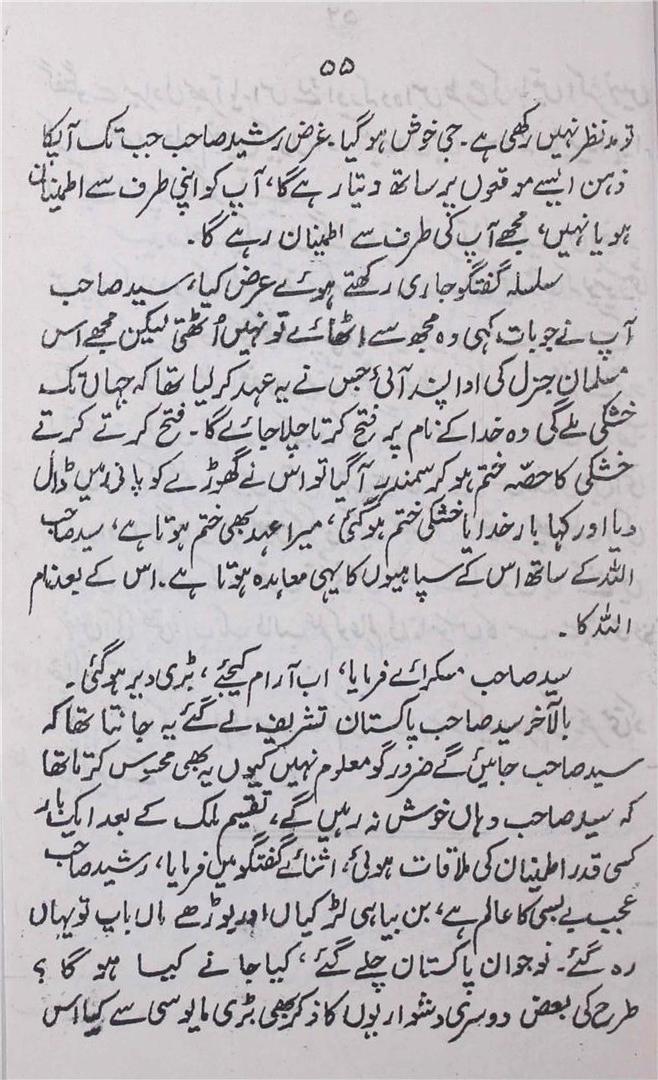 ۵۵
تو مدنظر نہیں رکھی ہے۔ جی خوش ہوگیا۔ غرض رشید صاحب جب تک آپکا
ذہن ایسے موقعوں پر ساتھ دیتا رہے گا، آپ کو اپنی طرف سے اطمینان
ہو یا نہیں، مجھے آپ کی طرف سے اطمینان رہے گا۔
سلسلہ گفتگو جاری رکھتے ہوئے عرض کیا، سید صاحب
آپ نے جو بات کہی وہ مجھ سے اٹھائے تو نہیں اُٹھتی لیکن مجھے اس
مسلمان جنرل کی ادا پسند آئی جس نے یہ عہد کر لیا تھا کہ جہاں تک
خشکی ملے گی وہ خدا کے نام پر فتح کرتا چلا جائے گا۔ فتح کرتے کرتے
خشکی کا حصّہ ختم ہو کر سمندر آگیا تو اس نے گھوڑے کو پانی میں ڈال
دیا اور کہا بار خدایا خشکی ختم ہوگئی، میرا عہد بھی ختم ہوتا ہے، سید صاحب
اللہ کے ساتھ اس کے سپاہیوں کا یہی معاہدہ ہوتا ہے۔ اس کے بعد نام
اللہ کا۔
سید صاحب مسکرائے فرمایا، اب آرام کیجئے، بڑی دیر ہوگئی۔
بالآخر سید صاحب پاکستان تشریف لے گئے یہ جانتا تھا کہ
سید صاحب جائیں گے ضرور گو معلوم نہیں کیوں یہ بھی محسوس کرتا تھا
کہ سید صاحب وہاں خوش نہ رہیں گے، تقسیم ملک کے بعد ایک بار
کسی قدر اطمینان کی ملاقات ہوئی، اثنائے گفتگو میں فرمایا، رشید صاحب
عجیب بے بسی کا عالم ہے، بن بیاہی لڑکیاں اور بوڑھے ماں باپ تو یہاں
رہ گئے۔ نوجوان پاکستان چلے گئے، کیا جانے کیسا ہو گا؟
طرح کی بعض دوسری دشواریوں کا ذکر بھی بڑی مایوسی سے کیا اس